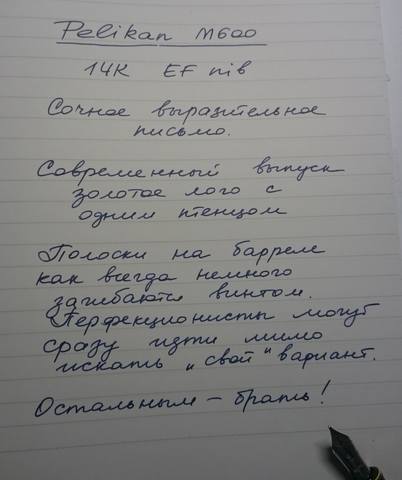 Pelikan M600
14K EF nib
Сочное выразительное
письмо.
Современный выпуск
золотое лого с
одним птенцом
Полоски на барреле
как всегда немного
загибаются винтом.
Перфекционисты могут
сразу идти мимо
искать "свой" вариант.
Остальным – брать!